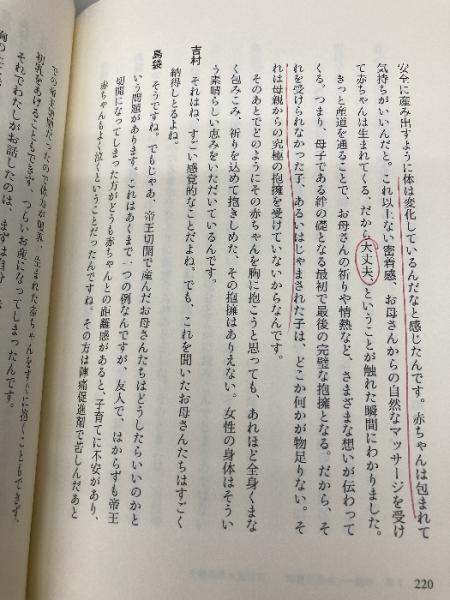 安全に産み出すように体は変化しているんだなと感じたんです。赤ちゃんは包まれて
気持ちがいいんだと。これ以上ない密着感、お母さんからの自然なマッサージを受け
て赤ちゃんは生まれてくる、だから大丈夫、ということが触れた瞬間にわかりました。
きっと産道を通ることで、お母さんの祈りや情熱など、さまざまな想いが伝わって
くる。つまり、母子である絆の礎となる最初で最後の完璧な抱擁となる。だから、そ
れを受けられなかった子、あるいはじゃまされた子は、どこか何かが物足りない。そ
れは母親からの究極の抱擁を受けていないからなんです。
そのあとでどのようにその赤ちゃんを胸に抱こうと思っても、あれほど全身くまな
く包みこみ、祈りを込めて抱きしめた、その抱擁はありえない。女性の身体はそうい
う素晴らしい恵みをいただいているんです。
吉村 それはね、すごい感覚的なことだよね。でも、これを聞いたお母さんたちはすごく
納得しとるよね。
島袋 そうですね。でもじゃあ、帝王切開で産んだお母さんたちはどうしたらいいのかと
いう問題があります。これはあくまで一つの例なんですが、友人で、はからずも帝王
切開になってしまった方がどうも赤ちゃんとの距離感があると、子育てに不安があり、
赤ちゃんもよく泣くということだったんですね。その方は陣痛促進剤で苦しんだあと
初乳をあげることもできず、つらいお産になってしまったんです。
それでわたしがお話したのは、まずは自分
220